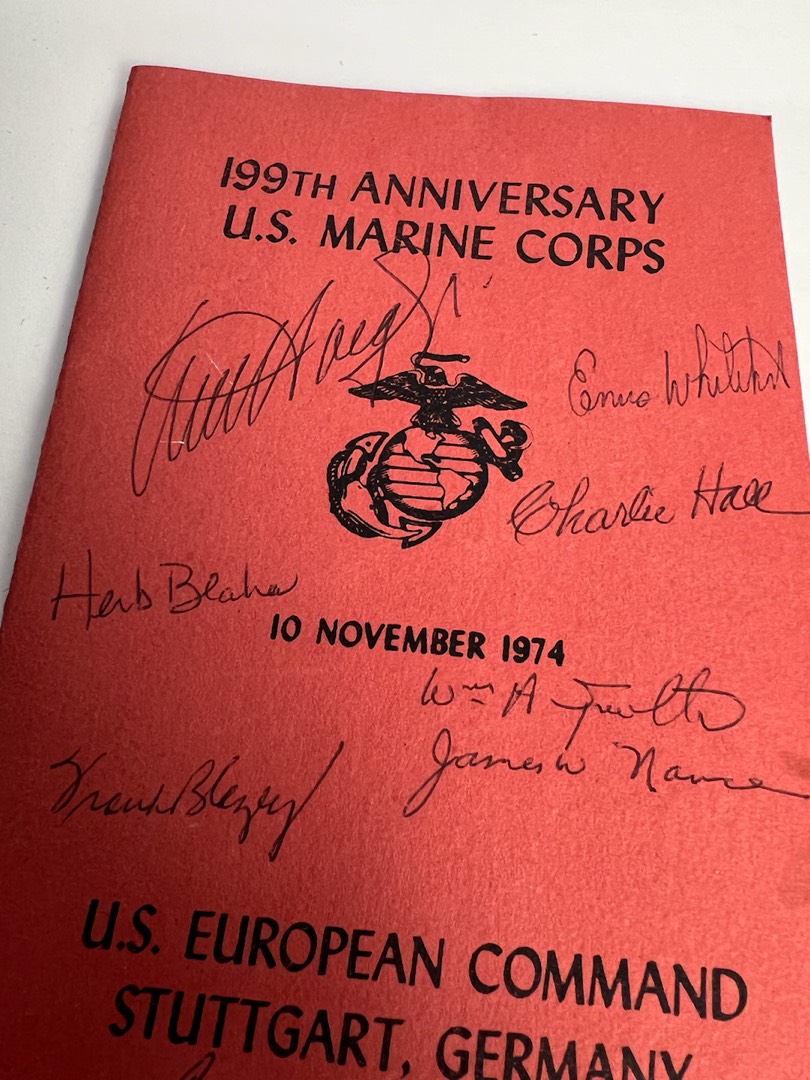 199TH ANNIVERSARY
U.S. MARINE CORPS
Ennis Whitehead
Charlie Hall
Herb Blaha
10 NOVEMBER 1974
Wm A
James W. Nance
Frank Blazey
U.S. EUROPEAN COMMAND
STUTTGART, GERMANY